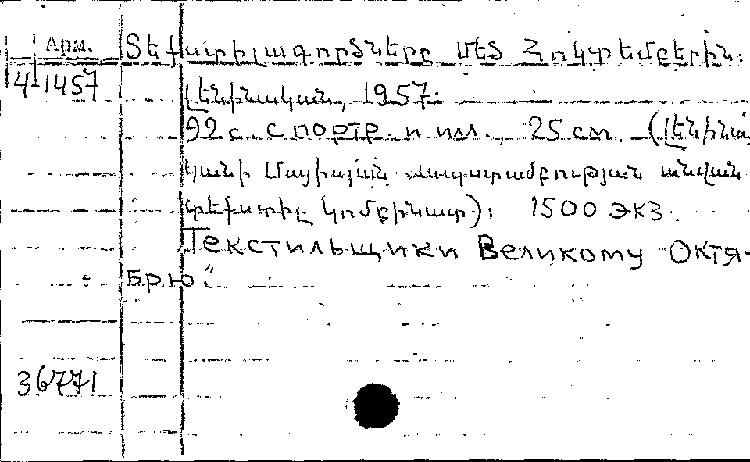 Арм.
4-1457
Տեքստիլագործները Մեծ Հոկտեմբերին.
Լենինական, 1957.
92 с. с портр. и ил., 25 см. (Լենինա
կանի Մայիսյան ապստամբության անվան
տեքստիլ կոմբինատ)։ 1500 экз.
Текстильщики Великому Октя-
брю"
36771